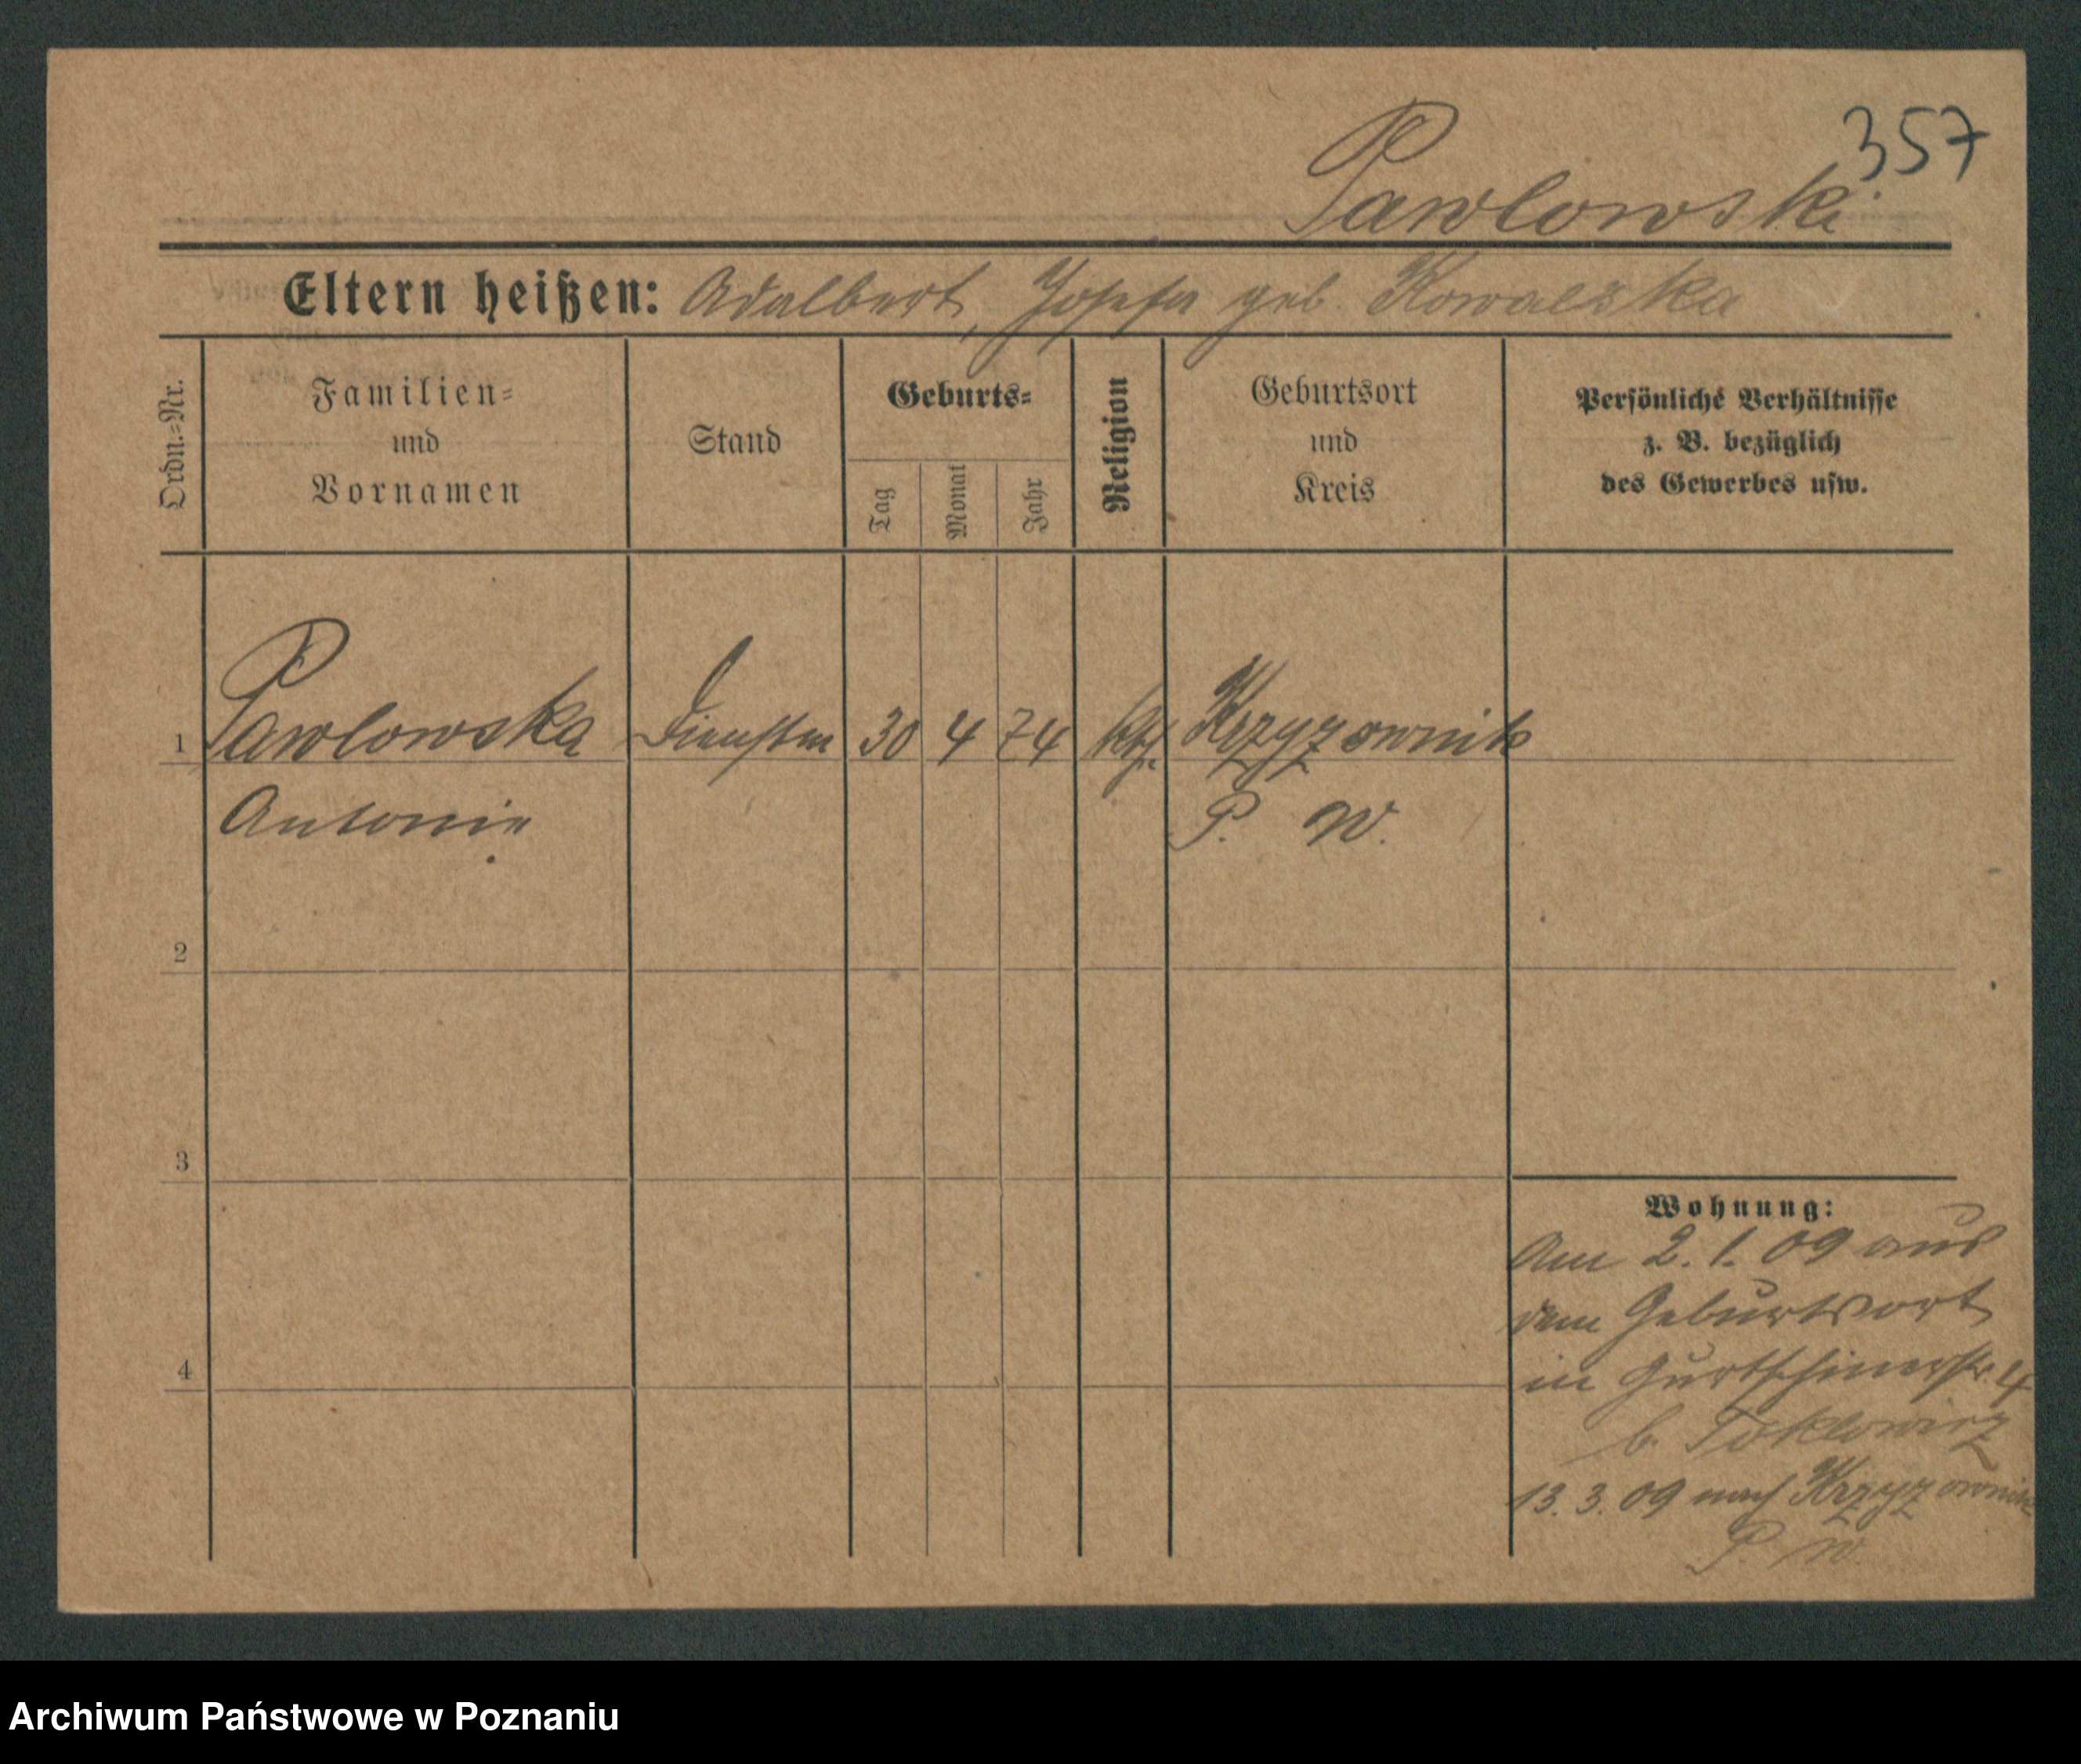 357
Pawlowski
Eltern heißen: Adalbert, Josefa geb. Kowalska
Ordn.-Nr.
Familien-
und
Vornamen
Stand
Geburts-
Tag
Monat
Jahr
Religion
Geburtsort
und
Kreis
Persönliche Verhältnisse
z. B. bezüglich
des Gewerbes usw.
1 Pawlowska 30 4 74 kth. Krzyzownik
Antonie P. W.
2
3
4
Wohnung:
Am 2. 1. 09 aus
dem Geburtsort
in Gurtschinerstr. 4
b.
13. 3. 09 nach Krzyzownik
P. W.
Archiwum Państwowe w Poznaniu